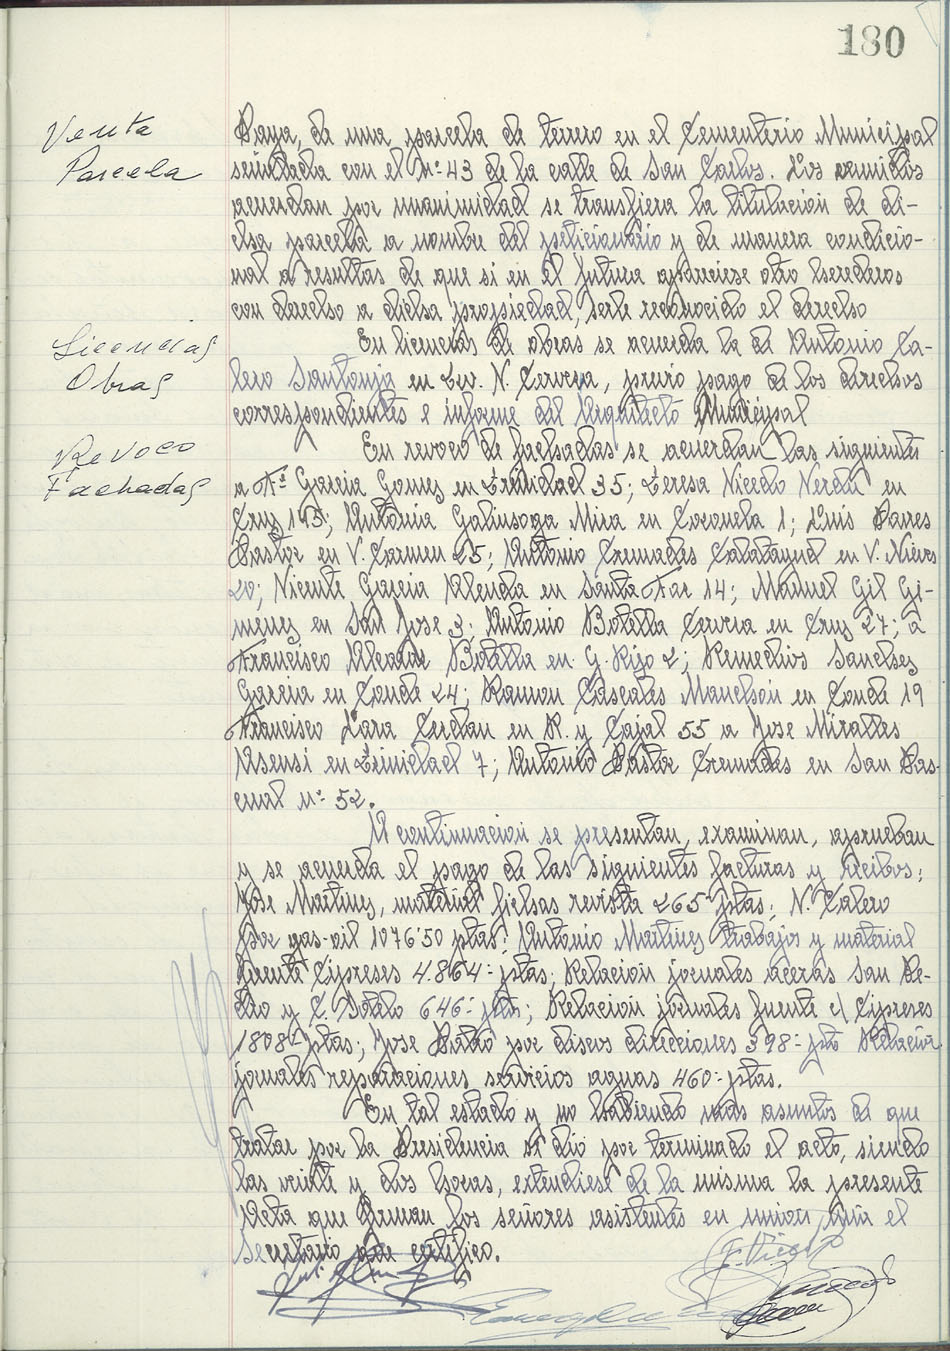 180
Venta
Parcela
Paya, de una parcela de terreno en el Cementerio Municipal
señalada con el Nº 43 de la calle de San Carlos. Los reunidos
acuerdan por unanimidad se transfiera la titulacion de di-
cha parcela a nombre del peticionario y de manera condicio-
nal a resultas de que si en el futuro apareciese otro herederos
con derecho a dicha propiedad, serle reconocido el derecho
Licencias
Obras
En licencias de obras se acuerda la de Antonio Ca-
lero Santonja en Cer. N. Cervera, previo pago de los derechos
correspondientes e informe del Arquitecto Municipal
Revoco
Fachadas
En revoco de fachadas se acuerdan las siguientes
a Fª Garcia Gomez en Trinidad 35; Teresa Nicedo Verdu en
Cruz 145; Antonia Galinsoga Mira en Coronela 1; Luis Parres
Pastor en V. Carmen 25; Antonio Cremades Calatayud en V. Nieves
20; Vicente Garcia Abenda en Santa Faz 14; Manuel Gil Gi-
menez en San Jose 3; Antonio Botella Cervera en Cruz 27; a
Francisco Alcaide Botella en G. Rizo 2; Remedios Sanchez
Garcia en Conde 24; Ramon Cascales Manchon en Conde 19
Francisco Lara Cerdan en R. y Cajal 55 a Jose Miralles
Asensi en Trinidad 7; Antonio Pastor Cremades en San Pas-
cual nº 52.
A continuacion se presentan, examinan, aprueban
y se acuerda el pago de las siguientes facturas y recibos;
Jose Martinez, material fichas revista 265 ptas; N. Calero
por gas-oil 1076'50 ptas; Antonio Martinez trabajos y material
fuente Cipreses 4.864- ptas; Relacion jornales aceras San Pe-
dro y C. Sotelo 646- pts; Relacion jornales fuente el Cipreses
1808- ptas; Jose por discos direcciones 398- pts Relacion
jornales reparaciones servicios aguas 460- ptas.
En tal estado y no habiendo mas asuntos de que
tratar por la Presidencia se dio por terminado el acto, siendo
las veinte y dos horas, extendiese de la misma la presente
Acta que firman los señores asistentes en union mia el
Secretario que certifico.